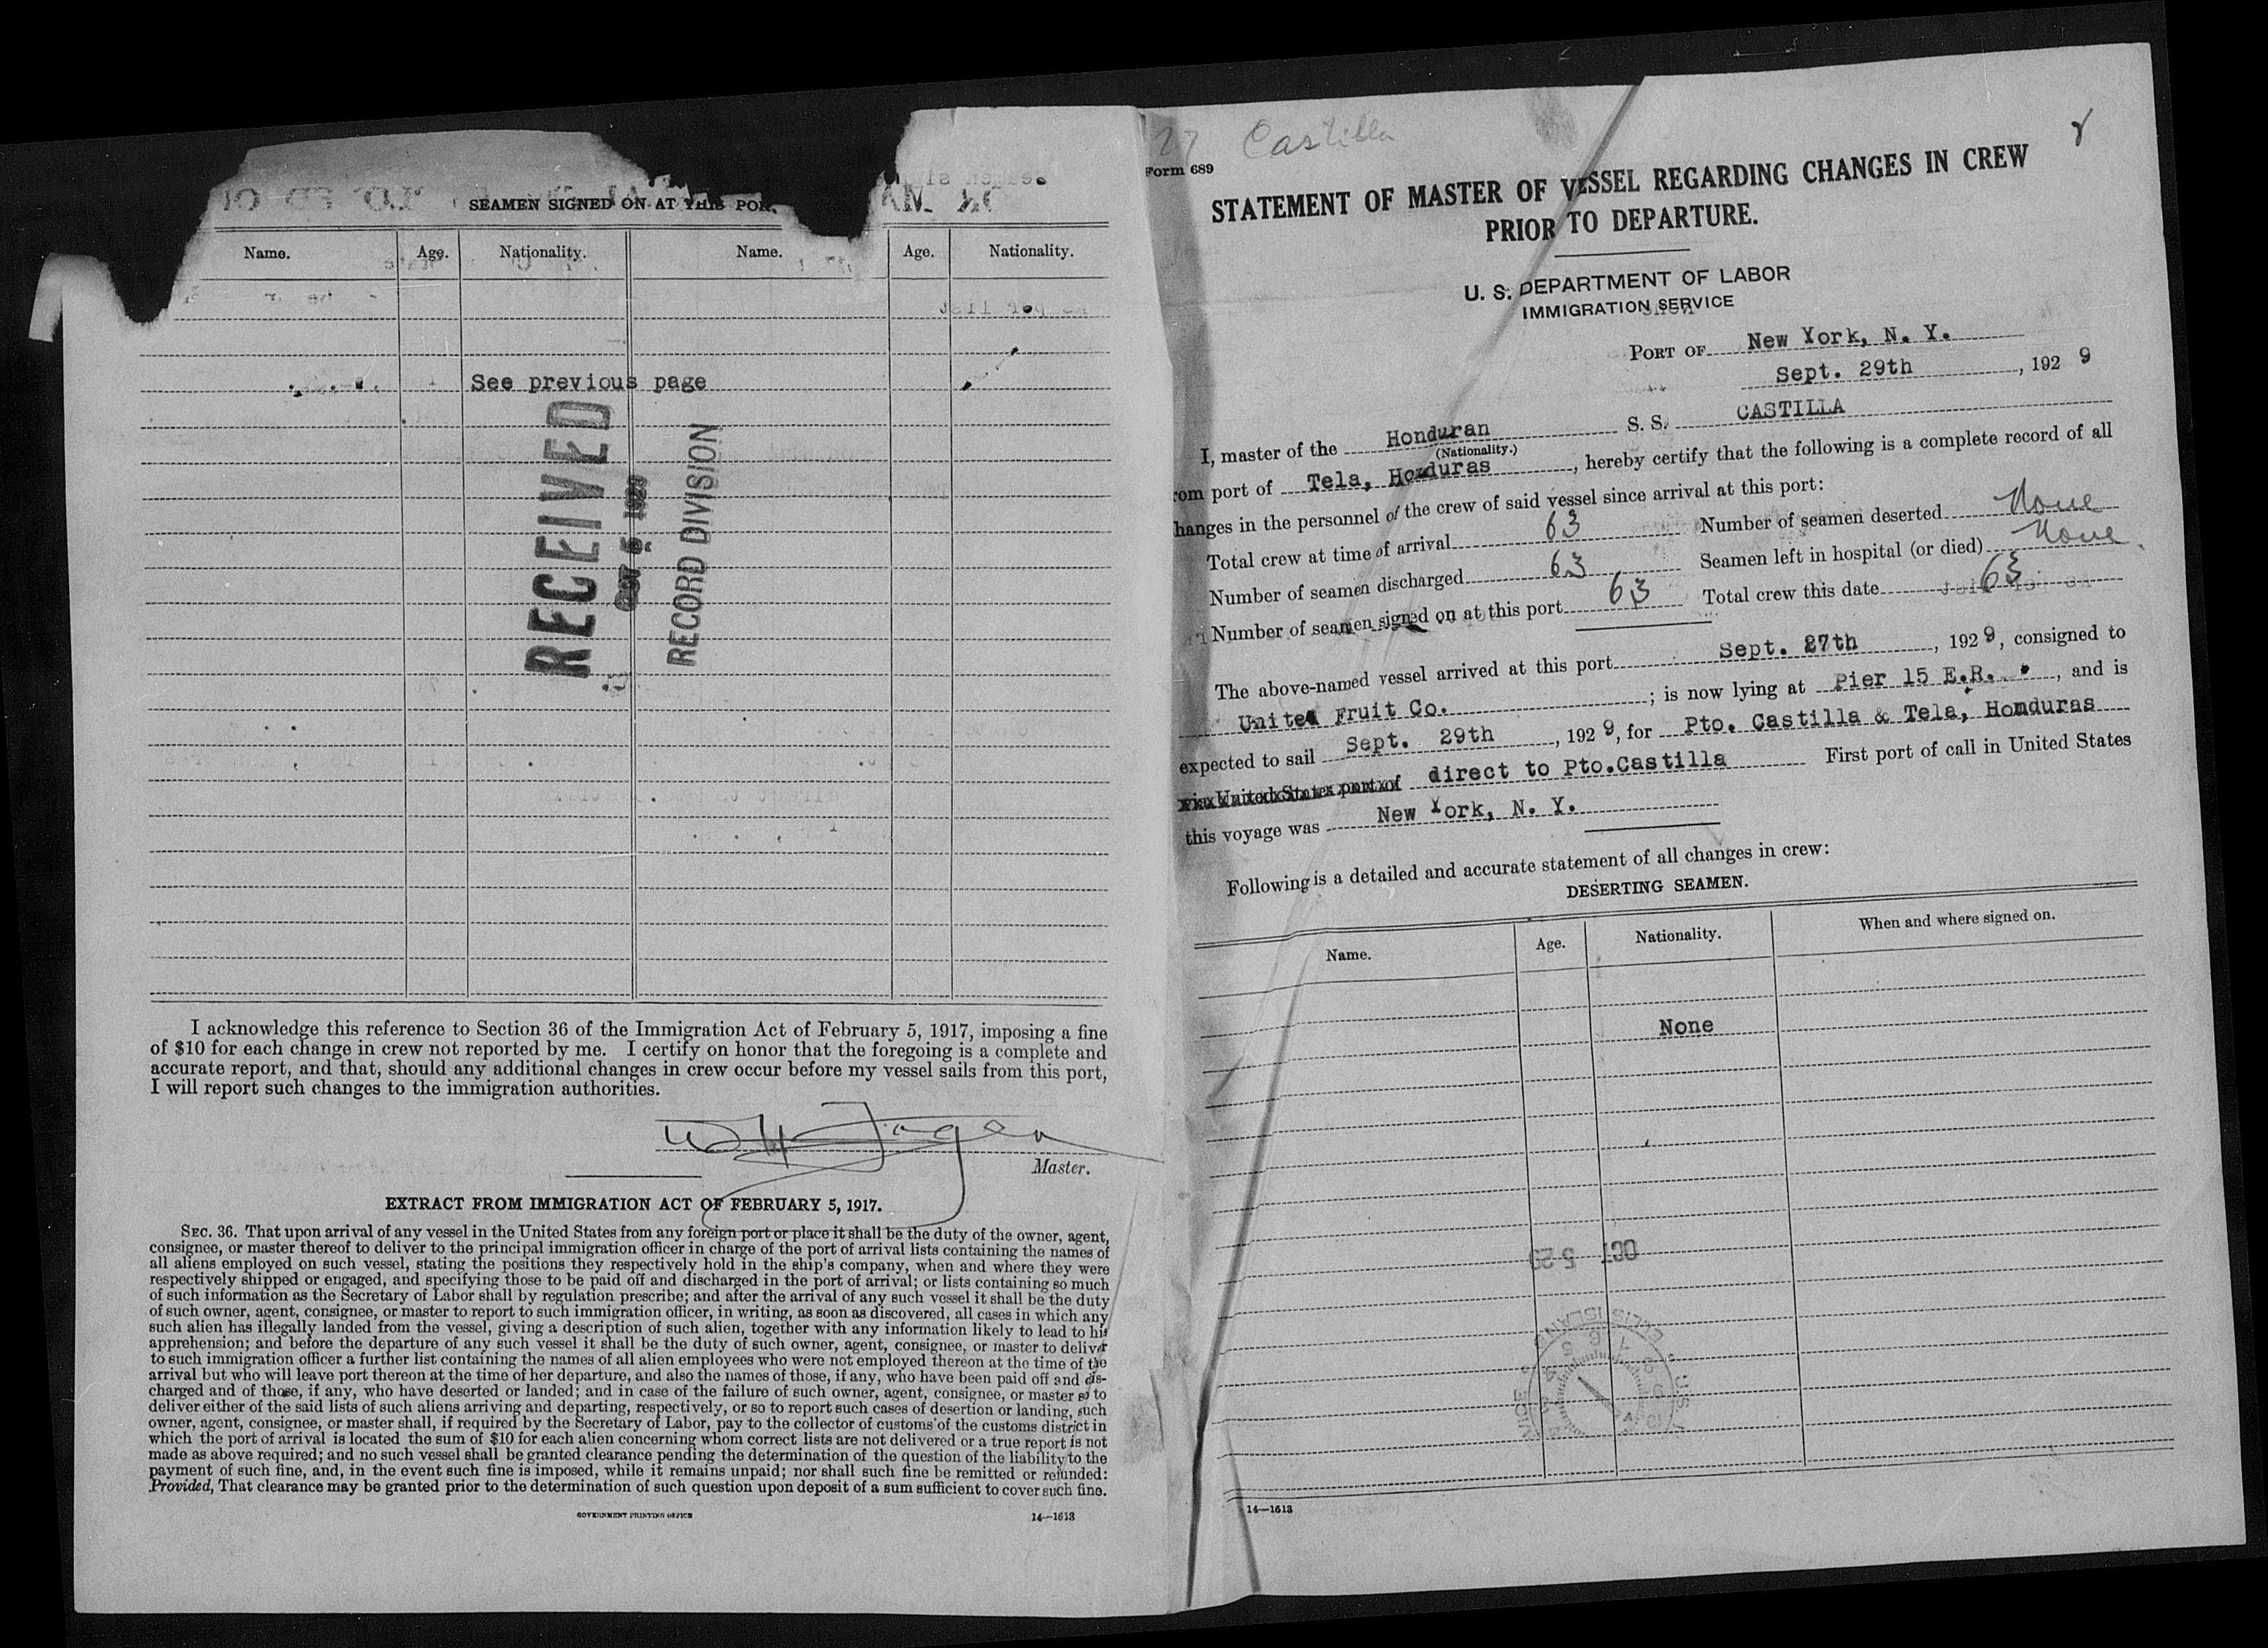 SEAMEN SIGNED ON AT THIS POR
Name. Age. Nationality. Name. Age. Nationality.
See previous page
RECEIVED
OCT 5 1929
RECORD DIVISION
I acknowledge this reference to Section 36 of the Immigration Act of February 5, 1917, imposing a fine
of $10 for each change in crew not reported by me. I certify on honor that the foregoing is a complete and
accurate report, and that, should any additional changes in crew occur before my vessel sails from this port,
I will report such changes to the immigration authorities.
Master.
EXTRACT FROM IMMIGRATION ACT OF FEBRUARY 5, 1917.
SEC. 36. That upon arrival of any vessel in the United States from any foreign port or place it shall be the duty of the owner, agent,
consignee, or master thereof to deliver to the principal immigration officer in charge of the port of arrival lists containing the names of
all aliens employed on such vessel, stating the positions they respectively hold in the ship's company, when and where they were
respectively shipped or engaged, and specifying those to be paid off and discharged in the port of arrival; or lists containing so much
of such information as the Secretary of Labor shall by regulation prescribe; and after the arrival of any such vessel it shall be the duty
of such owner, agent, consignee, or master to report to such immigration officer, in writing, as soon as discovered, all cases in which any
such alien has illegally landed from the vessel, giving a description of such alien, together with any information likely to lead to his
apprehension; and before the departure of any such vessel it shall be the duty of such owner, agent, consignee, or master to deliver
to such immigration officer a further list containing the names of all alien employees who were not employed thereon at the time of the
arrival but who will leave port thereon at the time of her departure, and also the names of those, if any, who have been paid off and dis-
charged and of those, if any, who have deserted or landed; and in case of the failure of such owner, agent, consignee, or master so to
deliver either of the said lists of such aliens arriving and departing, respectively, or so to report such cases of desertion or landing, such
owner, agent, consignee, or master shall, if required by the Secretary of Labor, pay to the collector of customs of the customs district in
which the port of arrival is located the sum of $10 for each alien concerning whom correct lists are not delivered or a true report is not
made as above required; and no such vessel shall be granted clearance pending the determination of the question of the liability to the
payment of such fine, and, in the event such fine is imposed, while it remains unpaid; nor shall such fine be remitted or refunded:
Provided, That clearance may be granted prior to the determination of such question upon deposit of a sum sufficient to cover such fine.
GOVERNMENT PRINTING OFFICE 14—1613
27 Castilla
Form 689
STATEMENT OF MASTER OF VESSEL REGARDING CHANGES IN CREW
PRIOR TO DEPARTURE.
U. S. DEPARTMENT OF LABOR
IMMIGRATION SERVICE
PORT OF New York, N. Y.
Sept. 29th, 1929
I, master of the Honduran S. S. CASTILLA
(Nationality.)
rom port of Tela, Honduras, hereby certify that the following is a complete record of all
hanges in the personnel of the crew of said vessel since arrival at this port:
Total crew at time of arrival 63 Number of seamen deserted None
Number of seamen discharged 63 Seamen left in hospital (or died) None
Number of seamen signed on at this port 63 Total crew this date 63
The above-named vessel arrived at this port Sept. 27th, 1929, consigned to
United Fruit Co.; is now lying at Pier 15 E.R., and is
expected to sail Sept. 29th, 1929, for Pto. Castilla & Tela, Honduras
via United States port of direct to Pto.Castilla First port of call in United States
this voyage was New York, N. Y.
Following is a detailed and accurate statement of all changes in crew:
DESERTING SEAMEN.
Name. Age. Nationality. When and where signed on.
None
OCT 5 29
ELLIS ISLAND
14—1613